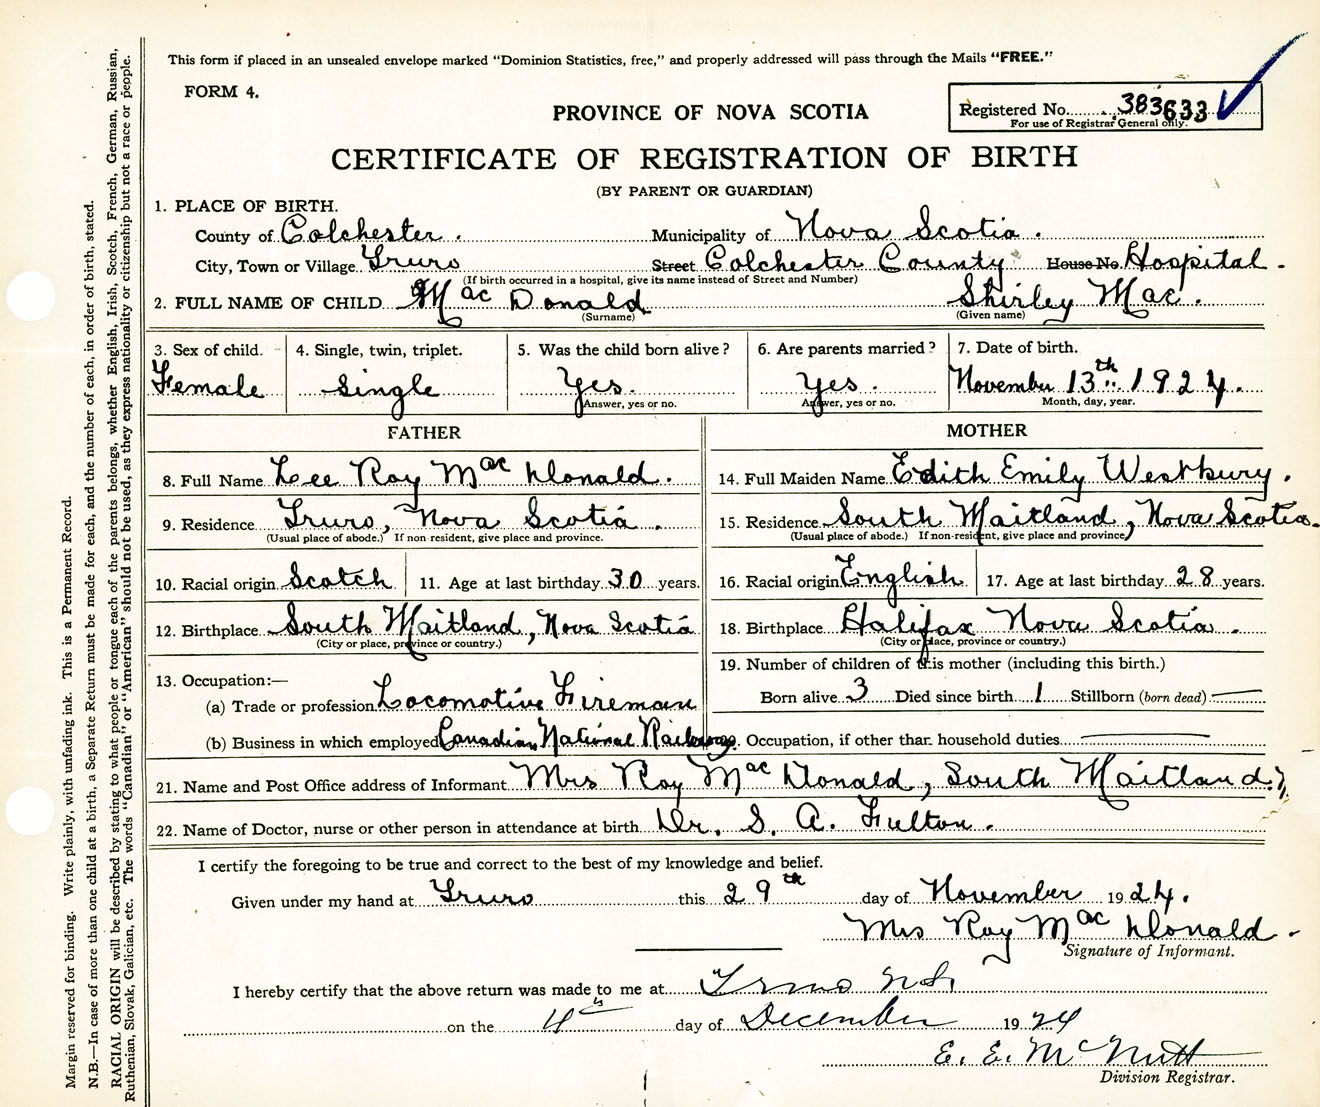 This form if placed in an unsealed envelope marked "Dominion Statistics, free," and properly addressed will pass through the Mails "FREE."
FORM 4.
PROVINCE OF NOVA SCOTIA
Registered No. 383633
For use of Registrar General only.
CERTIFICATE OF REGISTRATION OF BIRTH
(BY PARENT OR GUARDIAN)
1. PLACE OF BIRTH.
County of Colchester. Municipality of Nova Scotia.
City, Town or Village Truro Street Colchester County House No. Hospital.
(If birth occurred in a hospital, give its name instead of Street and Number)
2. FULL NAME OF CHILD MacDonald Shirley Mac.
(Surname) (Given name)
3. Sex of child. 4. Single, twin, triplet. 5. Was the child born alive? 6. Are parents married? 7. Date of birth.
Female Single Yes. Yes. November 13th 1924.
Answer, yes or no. Answer, yes or no. Month, day, year.
FATHER MOTHER
8. Full Name Lee Roy MacDonald. 14. Full Maiden Name Edith Emily Westbury.
9. Residence Truro, Nova Scotia. 15. Residence South Maitland, Nova Scotia.
(Usual place of abode.) If non-resident, give place and province. (Usual place of abode.) If non-resident, give place and province,
10. Racial origin Scotch 11. Age at last birthday 30 years. 16. Racial origin English 17. Age at last birthday 28 years.
12. Birthplace South Maitland, Nova Scotia 18. Birthplace Halifax Nova Scotia.
(City or place, province or country.) (City or place, province or country.)
13. Occupation:— 19. Number of children of this mother (including this birth.)
(a) Trade or profession Locomotive Fireman Born alive 3 Died since birth 1 Stillborn (born dead)
(b) Business in which employed Canadian National Railways. Occupation, if other than household duties
21. Name and Post Office address of Informant Mrs Roy MacDonald, South Maitland.
22. Name of Doctor, nurse or other person in attendance at birth Dr. S. A. Fulton.
I certify the foregoing to be true and correct to the best of my knowledge and belief.
Given under my hand at Truro this 29th day of November 1924.
Mrs Roy MacDonald.
Signature of Informant.
I hereby certify that the above return was made to me at Truro N.S.
on the 4th day of December 1924
E. E. McNutt
Division Registrar.
Margin reserved for binding. Write plainly, with unfading ink. This is a Permanent Record.
N.B.—In case of more than one child at a birth, a Separate Return must be made for each, and the number of each, in order of birth, stated.
RACIAL ORIGIN will be described by stating to what people or tongue each of the parents belongs, whether English, Irish, Scotch, French, German, Russian,
Ruthenian, Slovak, Galician, etc. The words "Canadian" or "American" should not be used, as they express nationality or citizenship but not a race or people.